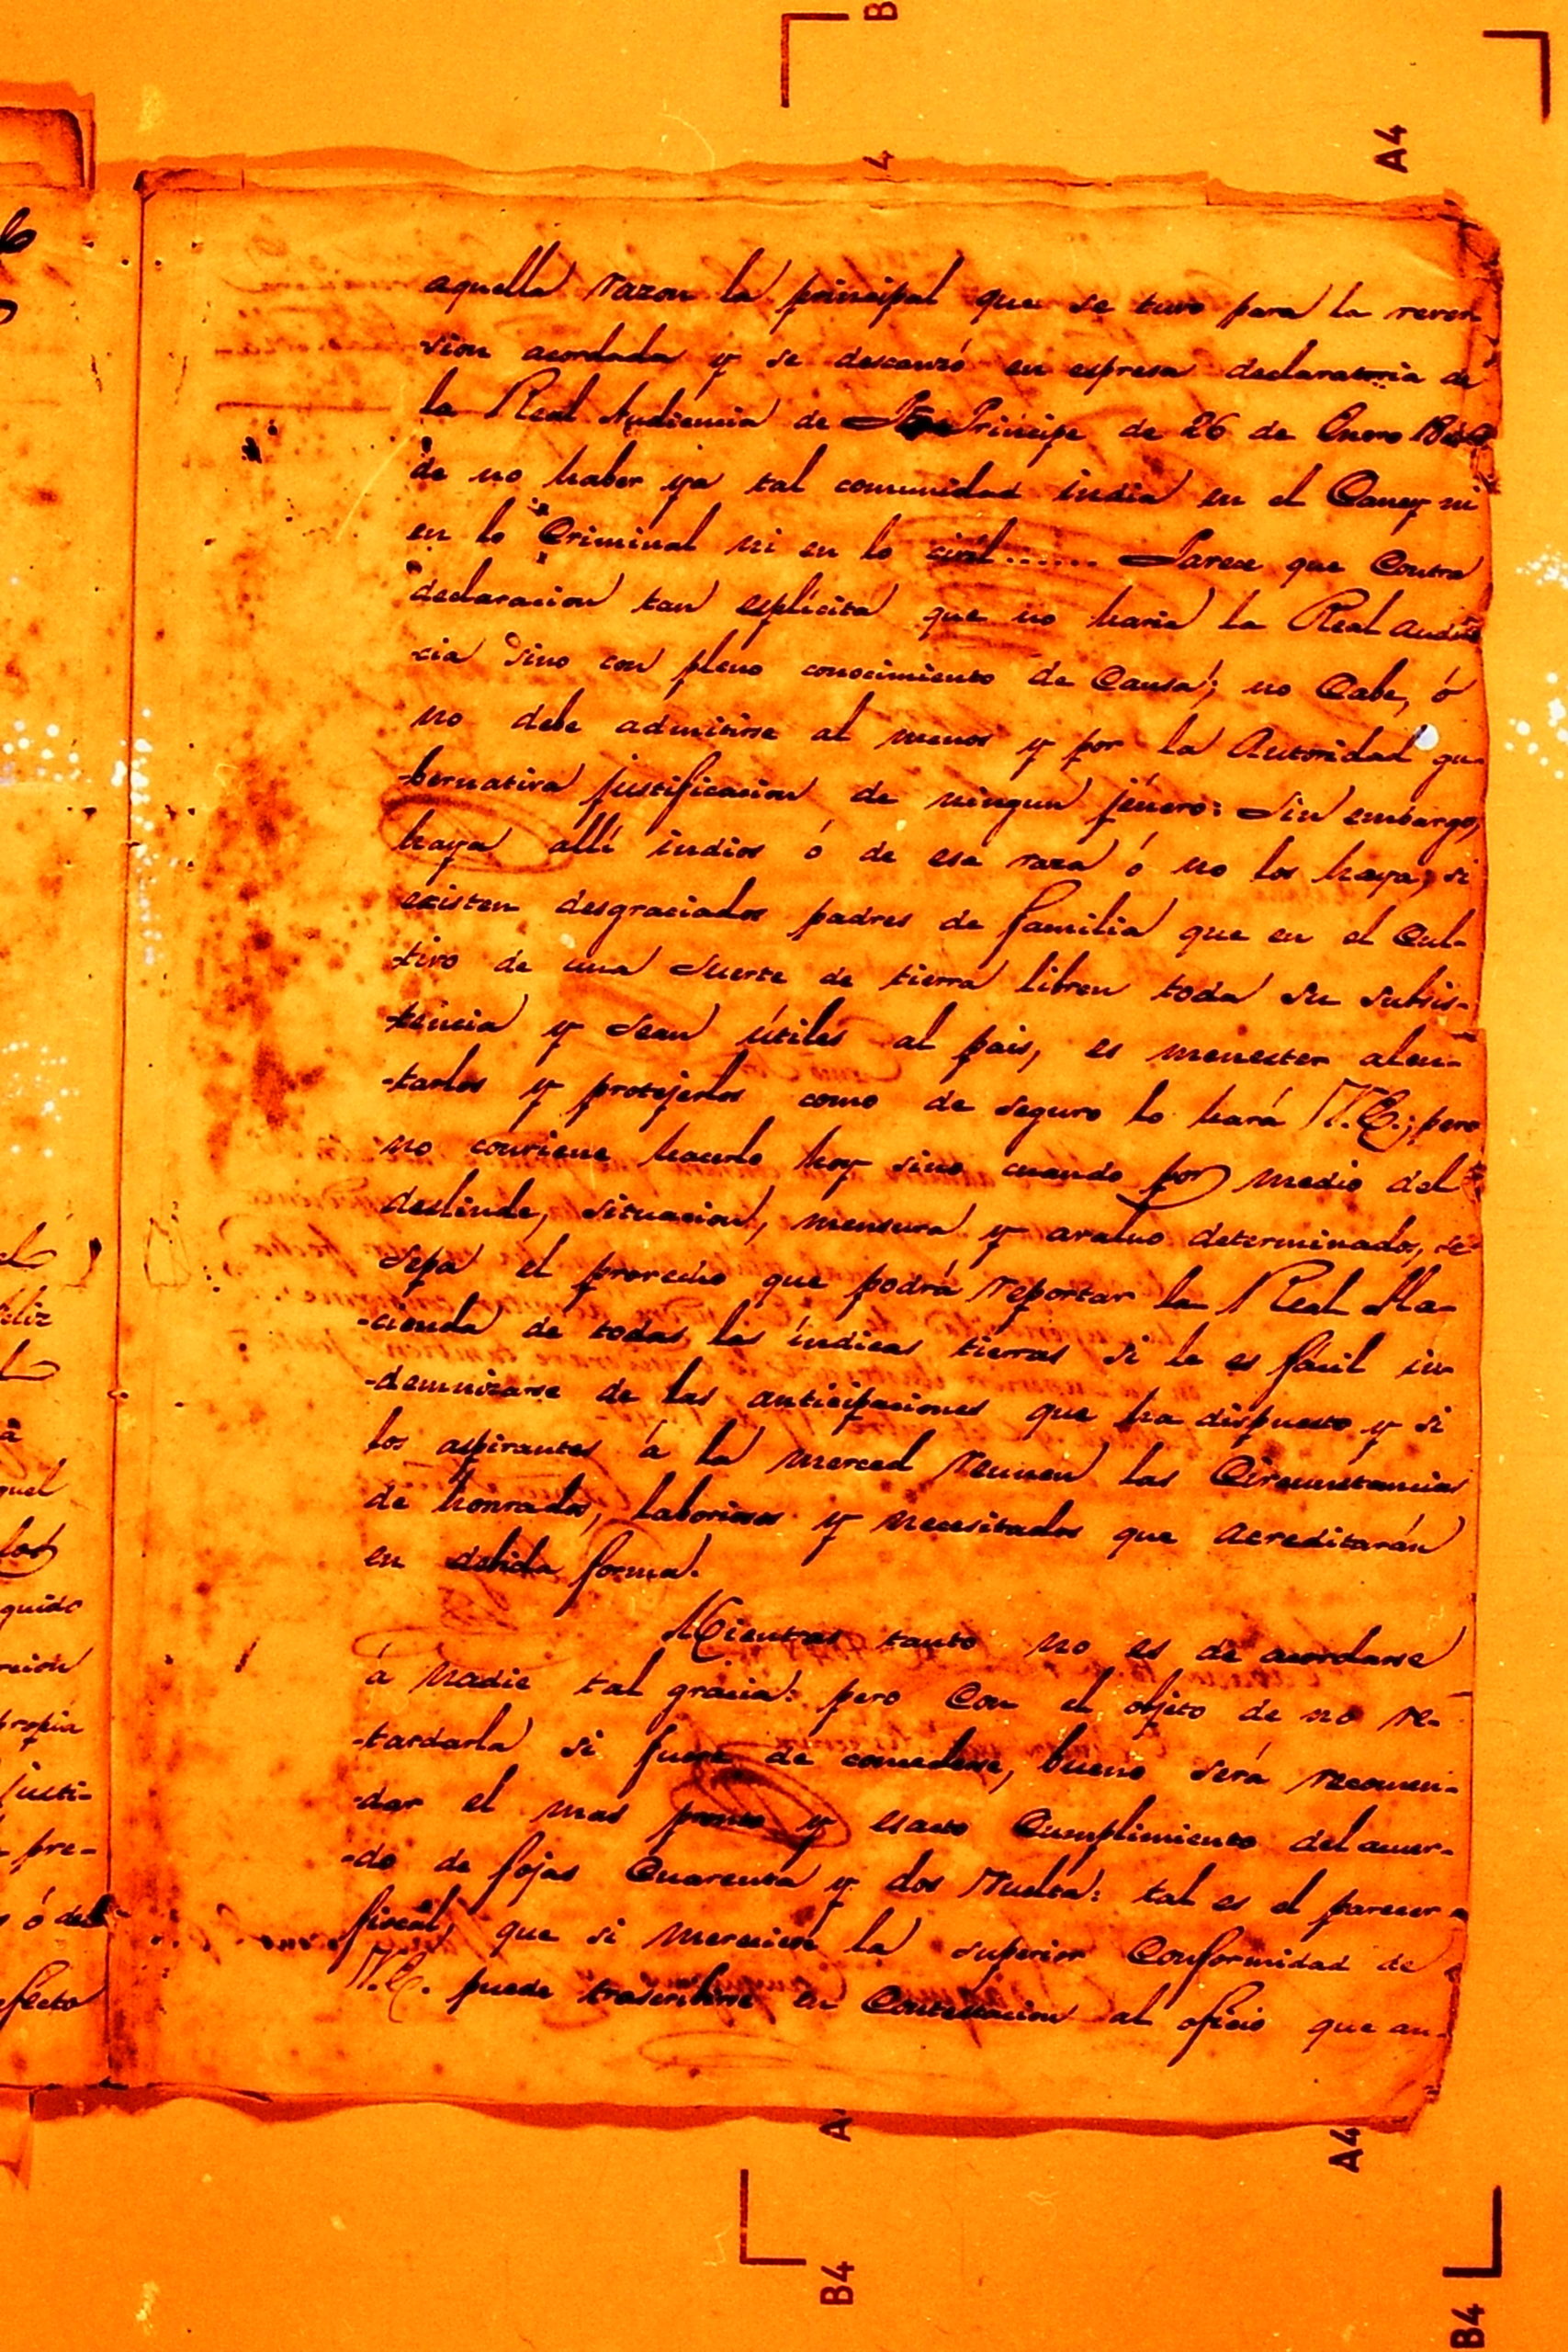 aquella razon la principal que se tuvo para la rever
sion acordada y se descanzó en espresa declaratoria de
la Real Audiencia de Pto Príncipe de 26 de Enero
de no haber ya tal comunidad india en el Caney ni
en lo Criminal ni en lo civil...... Parece que Contra
declaracion tan esplícita que no haria la Real Audien
-cia sino con pleno conocimiento de Causa; no Cabe, ó
no debe admitirse al menos y por la Autoridad gu-
-bernativa justificacion de ningun jénero: Sin embargo,
haya allí indios ó de esa raza ó no los haya, si
existen desgraciados padres de familia que en el Cul-
-tivo de una Suerte de tierra libren toda su subsis-
-tencia y Sean útiles al pais, es menester alen-
-tarlos y protejerlos como de seguro lo hará V.E.; pero
no conviene hacerlo hoy sino cuando por medio del
deslinde, situacion, mensura y avaluo determinado, se
sepa el provecho que podrá reportar la Real Ha-
-cienda de todas las indicas tierras si le es fácil in-
-demnizarse de las anticipaciones que ha dispuesto y si
los aspirantes á la merced reunen las Circunstancias
de honrados, laboriosos y necesitados que acreditarán
en debida forma.
Mientras tanto no es de acordarse
á nadie tal gracia: pero Con el objeto de no re-
-tardarla si fuere de concederse, bueno será recomen-
-dar el mas pronto y esacto Cumplimiento del acuer-
-do de fojas Cuarenta y dos Vuelta: tal es el parecer
fiscal, que si mereciere la superior Conformidad de
V.E. puede trascribirse en Contestacion al oficio que an-
A4
B4
A4
B4